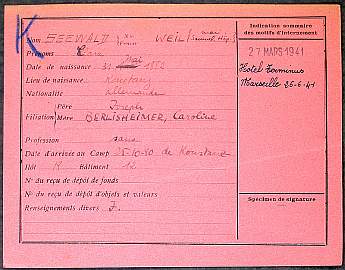 K
Nom SEEWALD née WEIL
Prénoms Clara
Date de naissance 31 Mai
Lieu de naissance Konstanz
Nationalité allemande
Filiation Père Joseph
Mère BERLISHEIMER, Caroline
Profession sans
Date d'arrivée au Camp 25-10-40 de Konstanz
Ilôt Bâtiment 12
N° du reçu de dépôt de fonds
N° du reçu de dépôt d'objets et valeurs
Renseignements divers J.
Indication sommaire des motifs d'internement
27 MARS 1941
Hotel Terminus
Marseille 26-6-41
Spécimen de signature